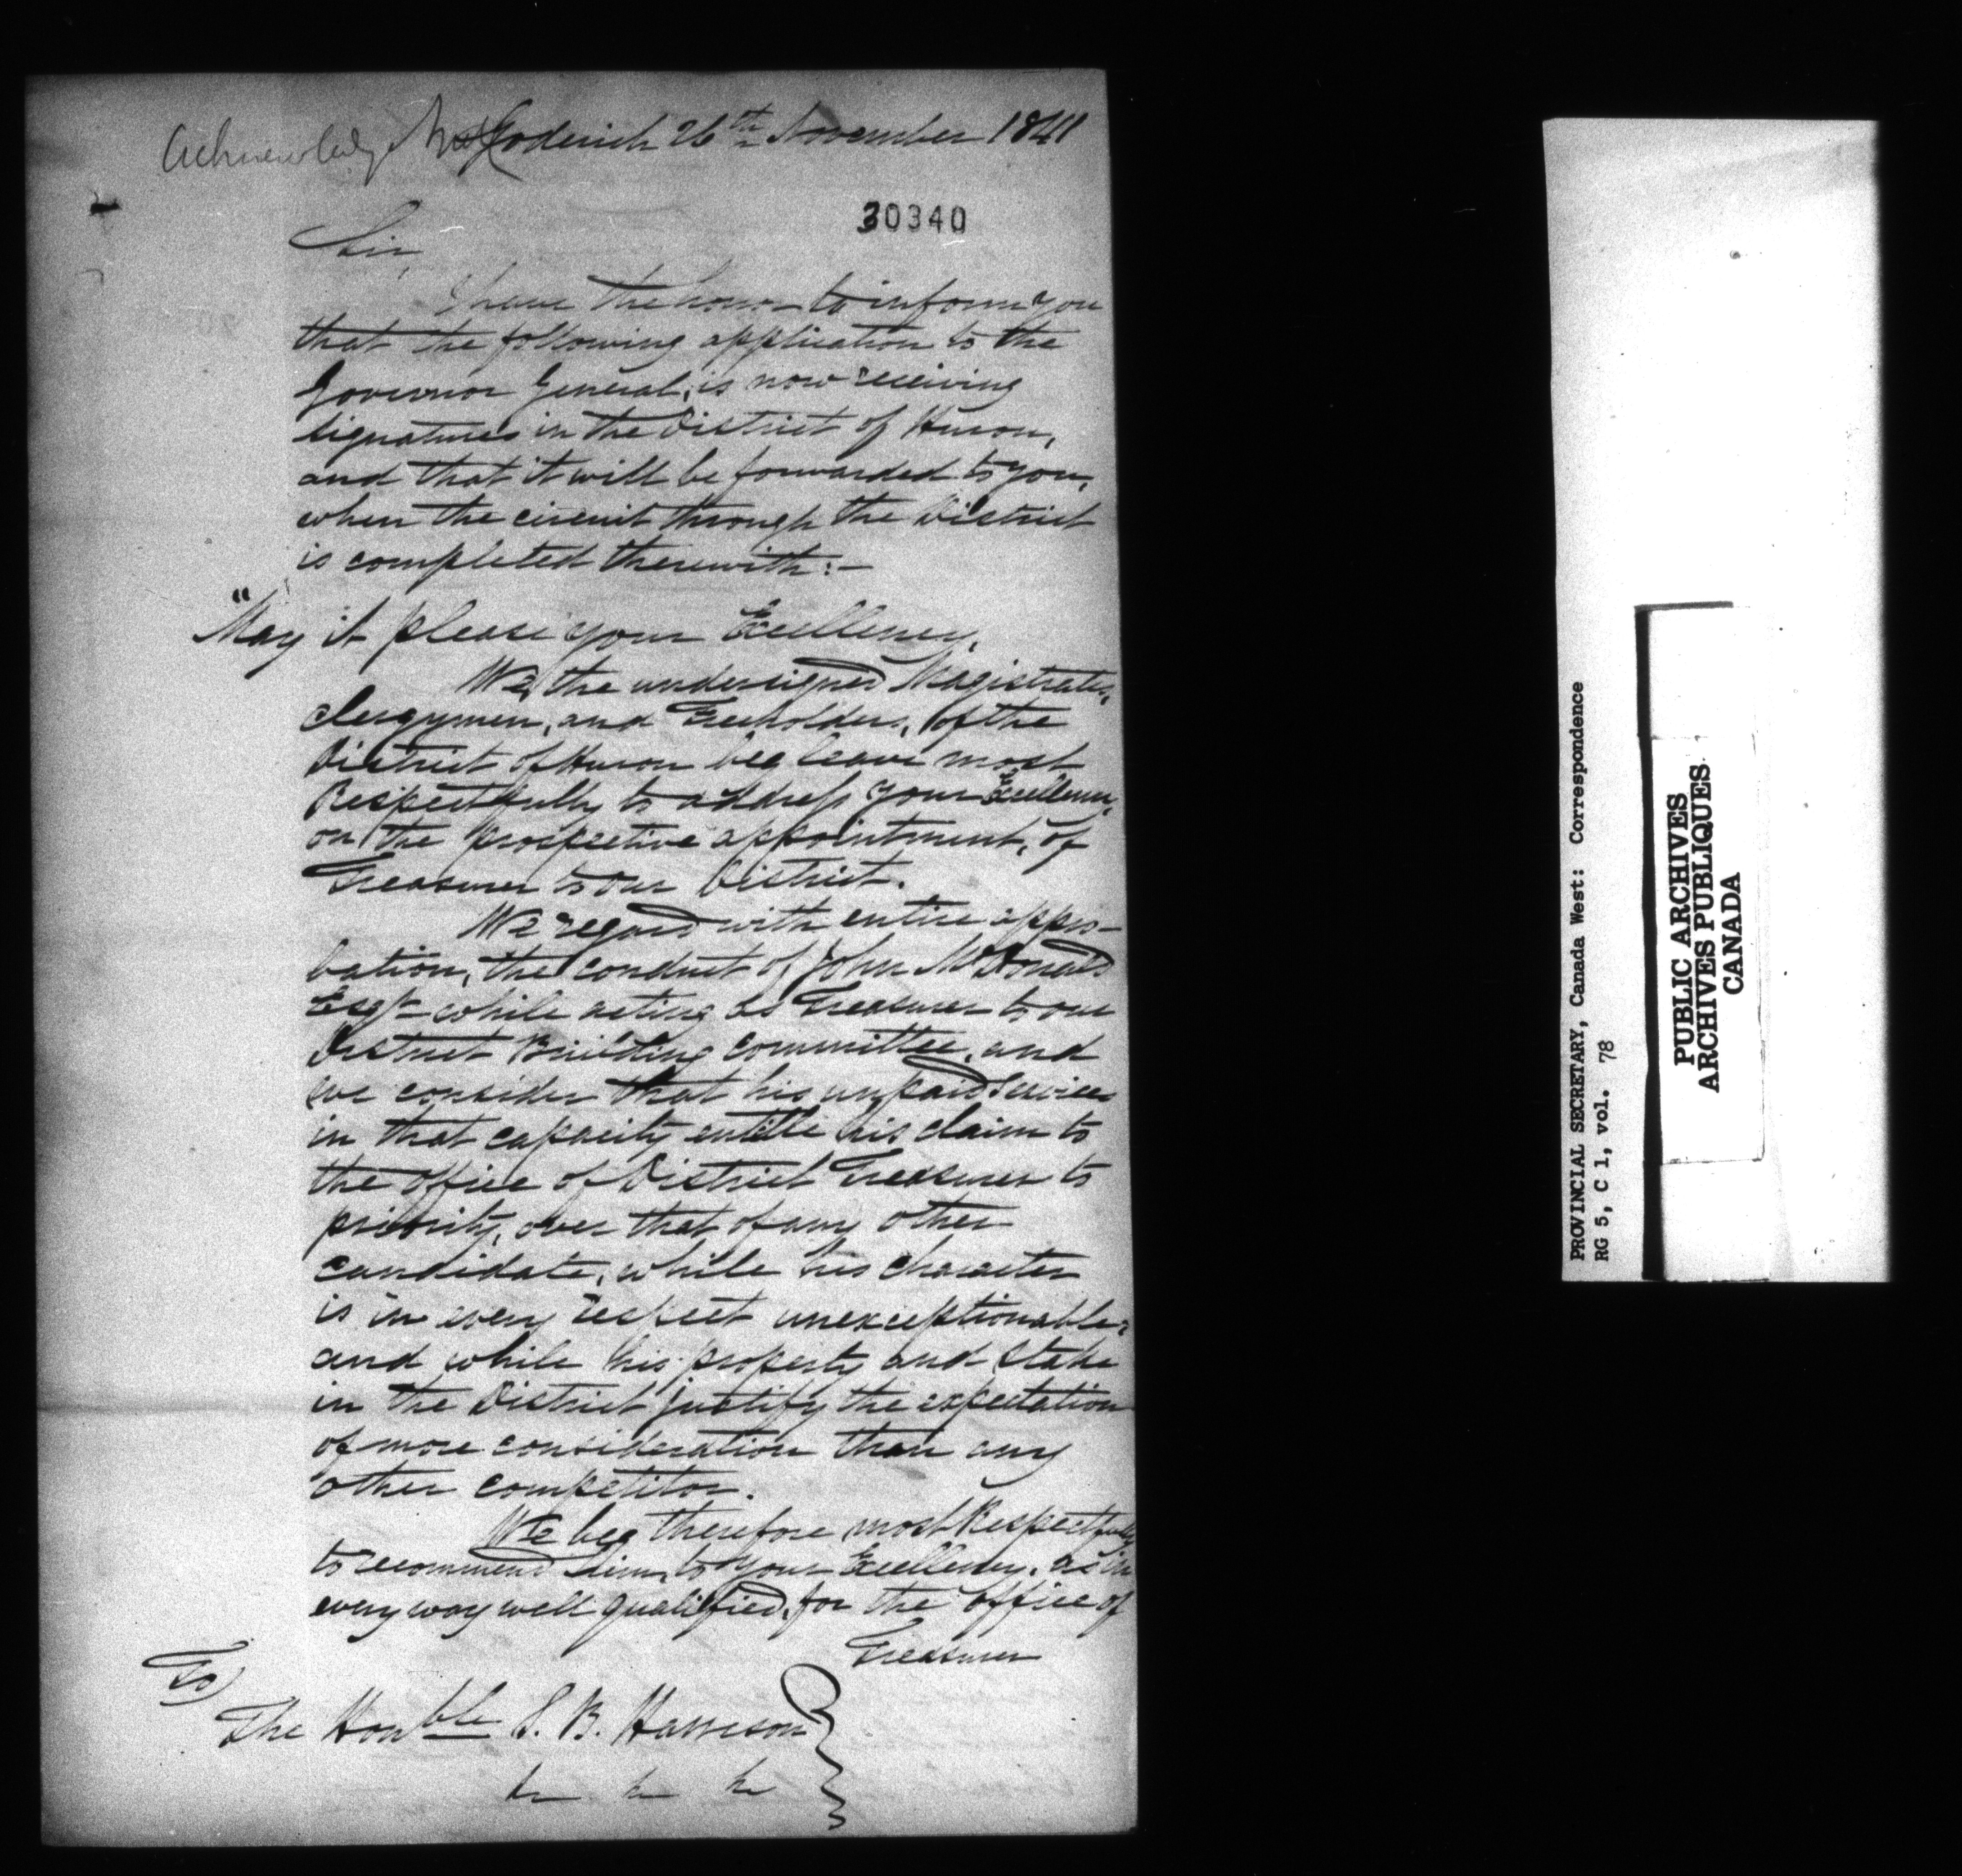 Acknowledge
Goderich 26th November 1841
30340
Sir,
I have the honor to inform you
that the following application to the
Governor General, is now receiving
signatures in the District of Huron,
and that it will be forwarded to you,
when the circuit through the District
is completed therewith:—
"May it please your Excellency,
We, the undersigned Magistrates,
Clergymen, and Freeholders, of the
District of Huron beg leave most
Respectfully to address your Excellency,
on the prospective appointment, of
Treasurer to our District.
We regard with entire appro-
bation, the conduct of John McDonald
Esqr while acting as Treasurer to our
District Building Committee, and
we consider that his unpaid services
in that capacity entitle his claim to
the office of District Treasurer to
priority, over that of any other
candidate, while his character
is in every respect unexceptionable,
and while his property and stake
in the District justify the expectation
of more consideration than any
other competitor.
We beg therefore most Respectfully
to recommend him, to your Excellency, as in
every way well qualified, for the office of
Treasurer
To
The Honble S. B. Harrison
&c &c &c
PROVINCIAL SECRETARY, Canada West: Correspondence
RG 5, C 1, vol. 78
PUBLIC ARCHIVES
ARCHIVES PUBLIQUES
CANADA